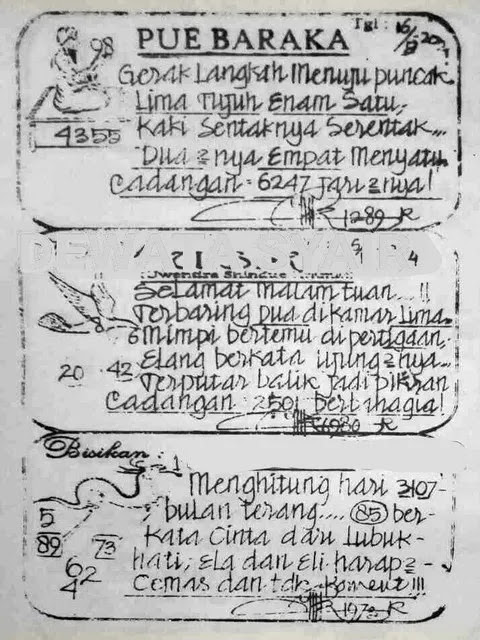 98
PUE BARAKA
Tgl : 16/8 20
Gerak Langkah Menuju puncak
Lima Tujuh Enam Satu,
4355
Kaki Sentaknya Serentak...
Dua 2nya Empat Menyatu
Cadangan = 6247 Jari2nya!
1289
4
Selamat malam tuan...!!
Terbaring Dua di kamar Lima.
6 Mimpi bertemu di pertigaan,
Elang berkata ujung2nya..
20 42
Terputar balik jadi pikiran
Cadangan 2501 berbahagia!
6980
Bisikan :
Menghitung hari 2107
5
bulan terang.... 85 ber-
89 73
kata Cinta dari lubuk-
62
hati, Ela dan Eli harap2-
4
Cemas dan tdk koment!!!
197